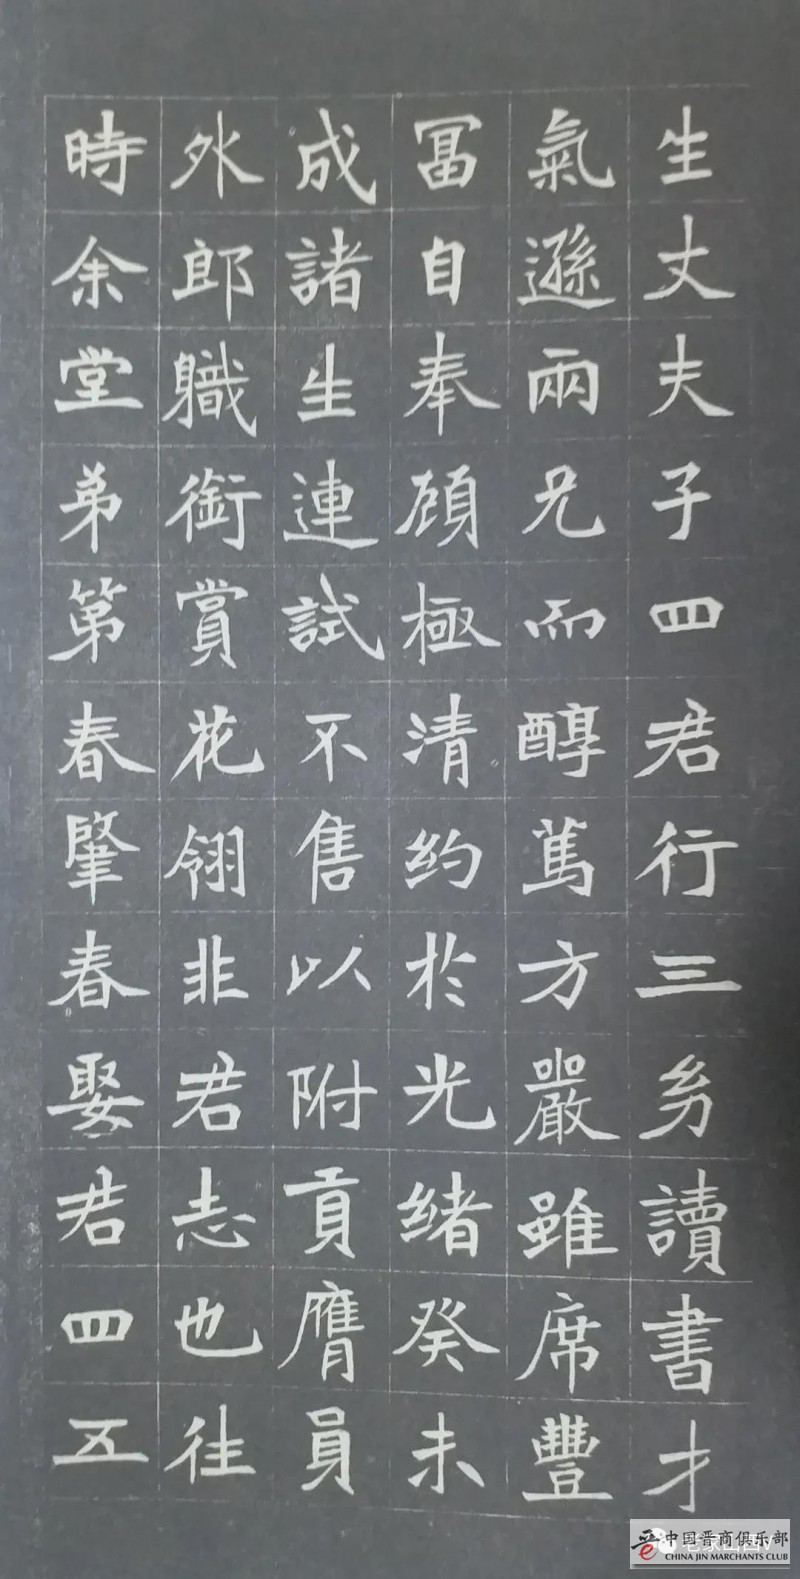 生丈夫子四君行三㓜讀書才
氣遜兩兄而醇篤方嚴雖席豐
冨自奉頋極清約於光绪癸未
成諸生連試不售以附貢膺員
外郎職銜賞花翎非君志也往
時余堂弟第春肇春娶君四五
中国晋商俱乐部
CHINA JIN MARCHANTS CLUB